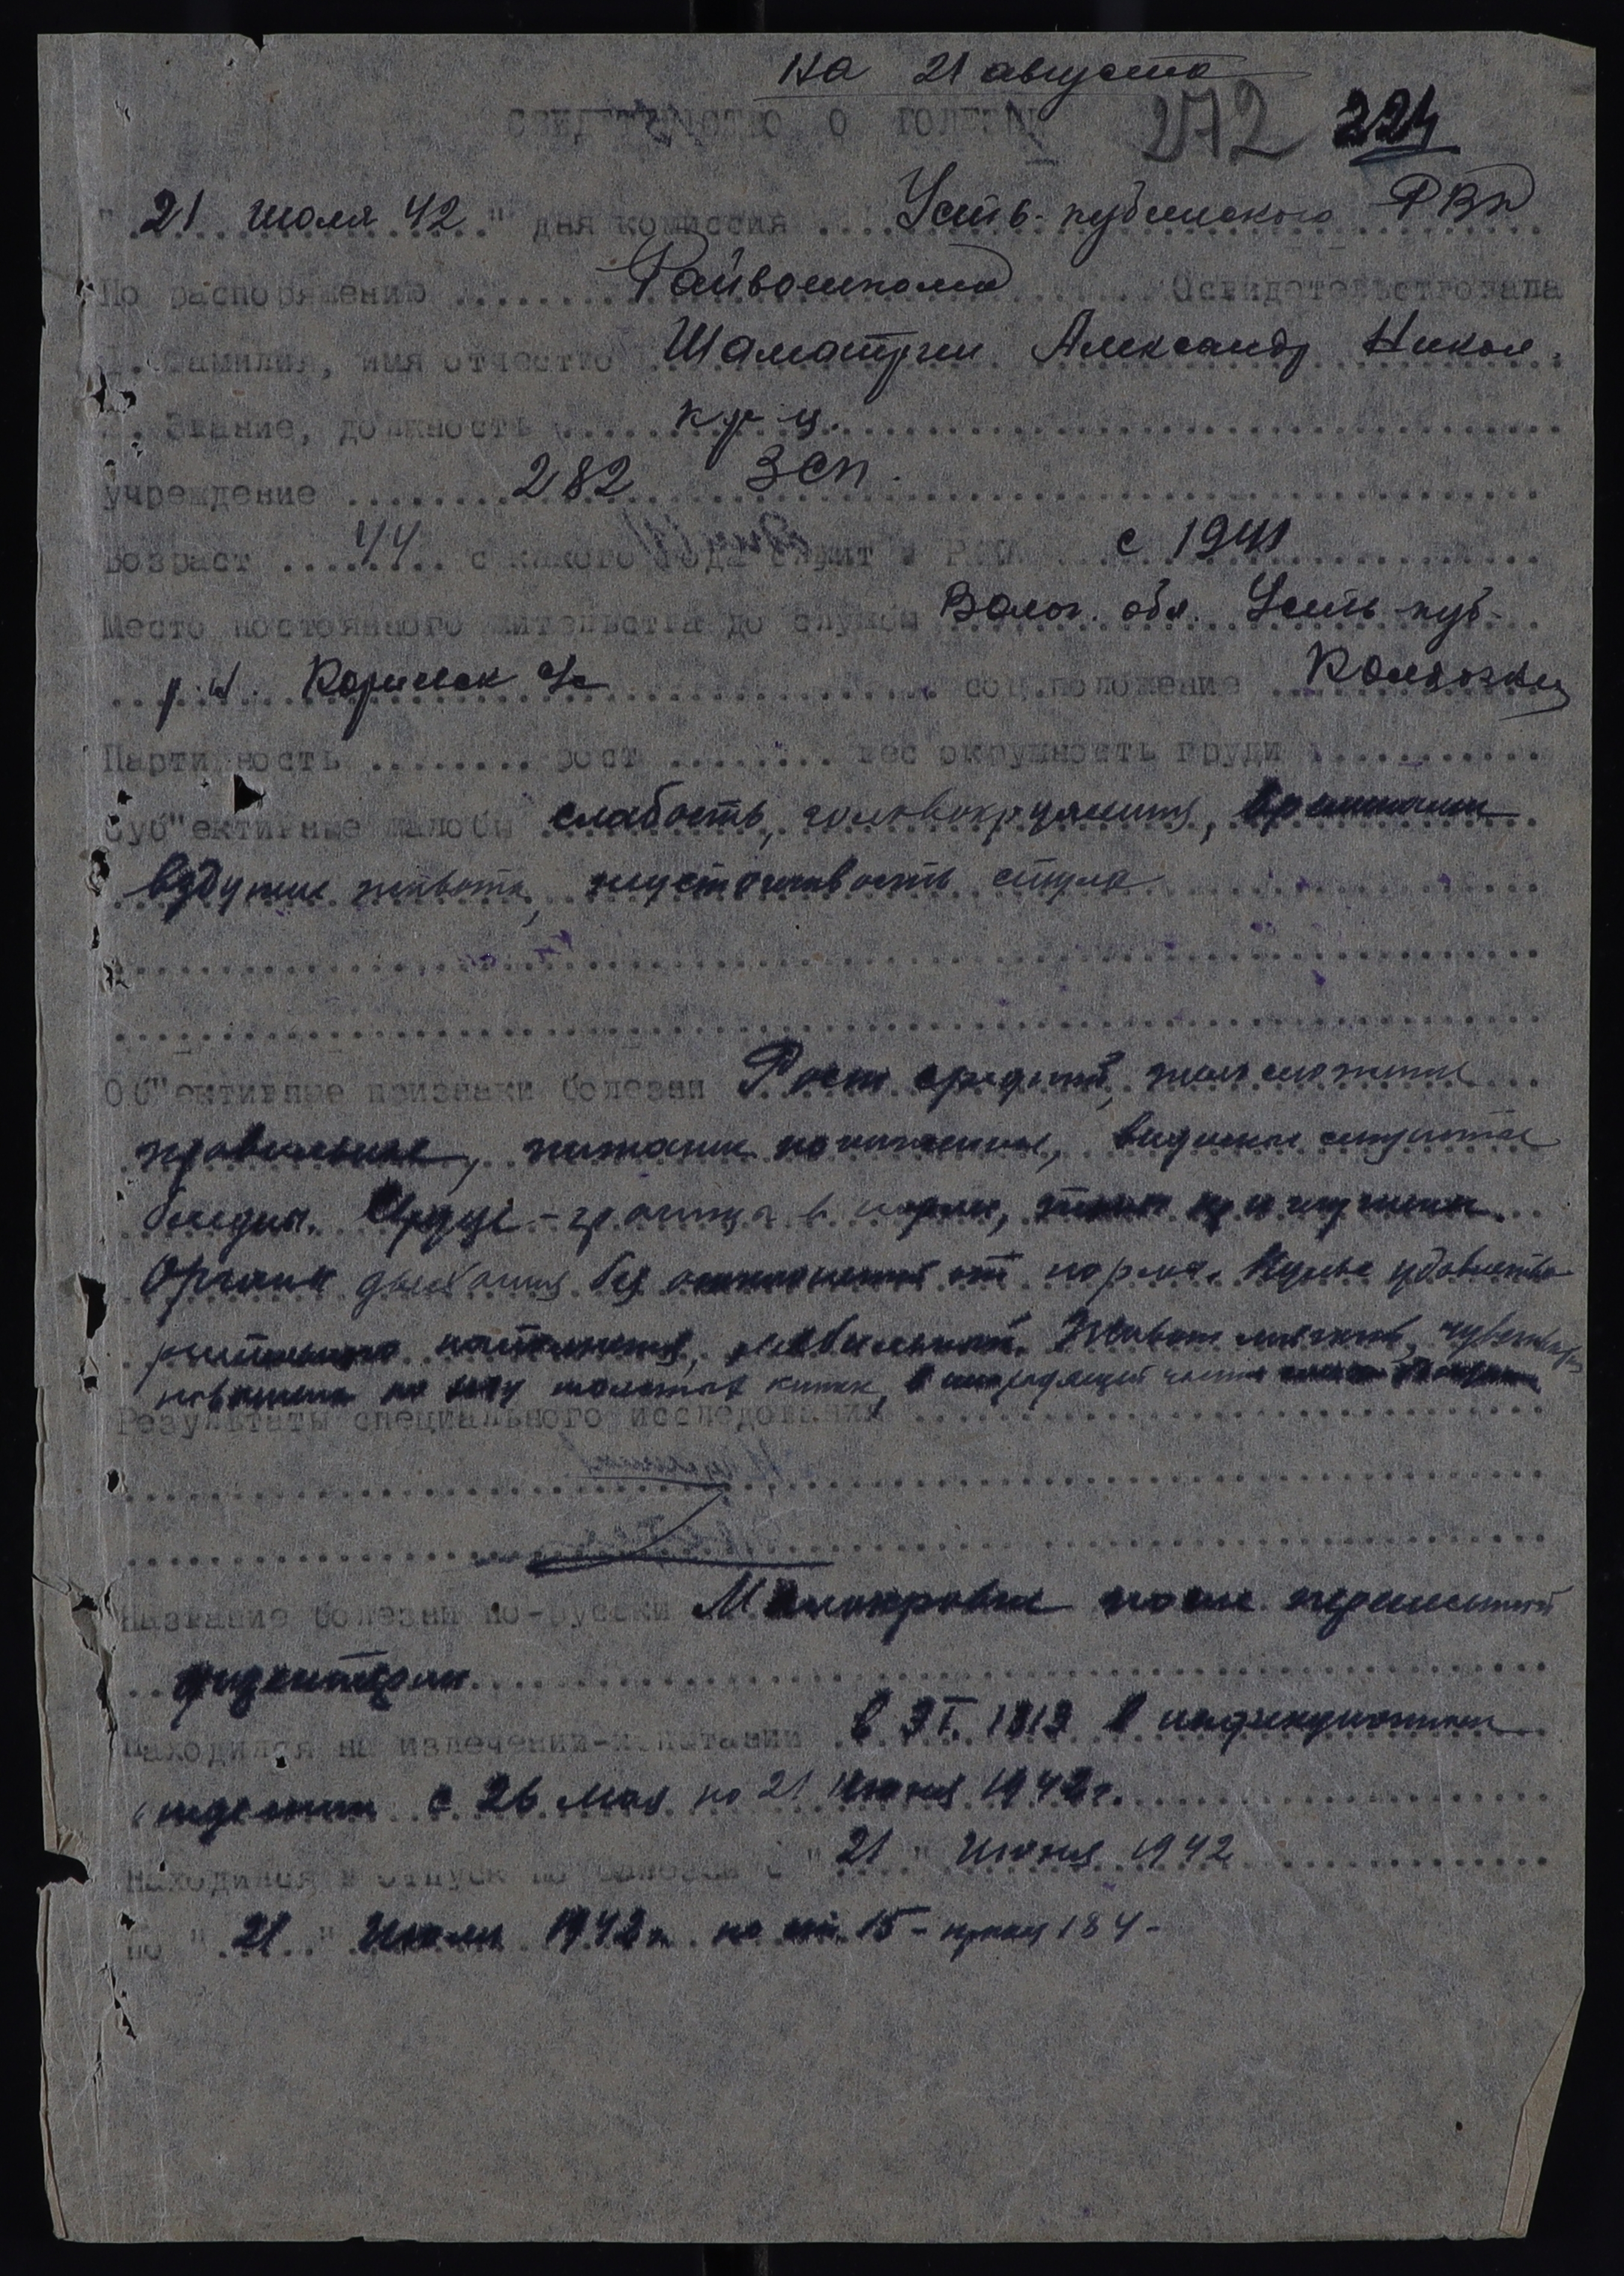 на 21 августа
СВИДЕТЕЛЬСТВО О БОЛЕЗНИ 272 224
" 21 июля 42 " дня комиссия Усть-кубинского РВК
По распоряжению Райвоенкома Освидетельствовала
1. Фамилия, имя отчество Александр Никол.
2. Звание, должность кр-ц.
учреждение 282 ЗСП.
Возраст 44 с какого года служит в РККА с 1941
Место постоянного жительства до службы Волог. обл. Усть-куб-
р-н. с/с соц.положение Колхозник
Партийность рост вес окружность груди
Суб"ективные жалобы слабость, головокружения,
вздутие живота, неустойчивость стула
Об"ективные признаки болезни Рост средний, телосложение
правильное, питание пониженное, видимые слизистые
бледны. Сердце - границы в норме, тоны приглушены.
Органы дыхания без отклонений от нормы. Пульс удовлетво-
рительного наполнения, лабильный. Живот мягкий, чувстви
по ходу толстых кишок, в части
Результаты специального исследования
Название болезни по-русски Малокровие после перенесенной
дизентерии
Находился на излечении-испытании в ЭГ. 1813 в инфекционном
отделении с 26 мая по 21 июня 1942г.
Находился в отпуск по болезни с " 21 " июня 1942
по " 21 " июля 1942г. по ст. 15 - приказ 184 -